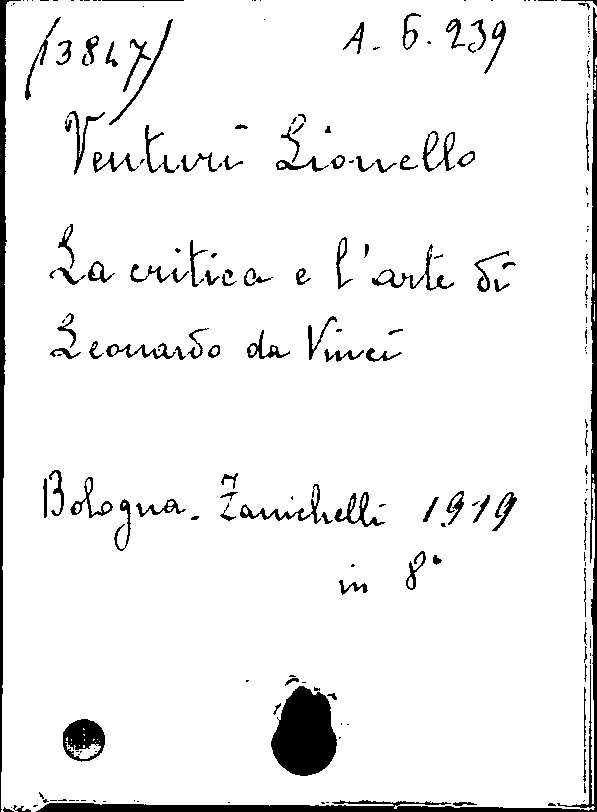 (13847)
A. 6. 239
Venturi Lionello
La critica e l'arte di
Leonardo da Vinci
Bologna. Zanichelli 1919
in 8°